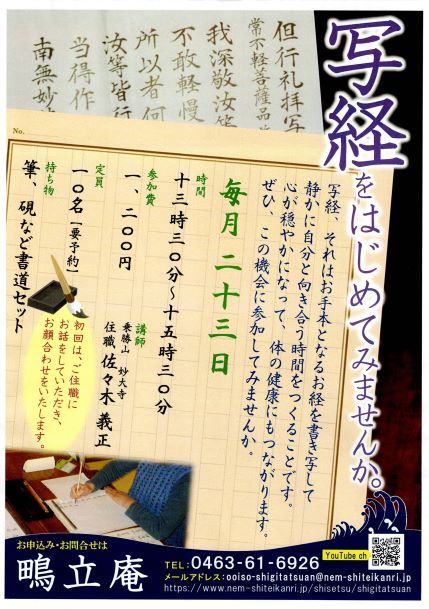 写経をはじめてみませんか。
但行礼拝写
常不軽菩薩品
我深敬汝等
不敢軽慢
所以者何
汝等皆行
当得作
南無妙
No.
写経、それはお手本となるお経を書き写して
静かに自分と向き合う時間をつくることです。
心が穏やかになって、体の健康にもつながります。
ぜひ、この機会に参加してみませんか。
毎月二十三日
時間
十三時三〇分～十五時三〇分
参加費
一、二〇〇円
講師
乗勝山 妙大寺
住職 佐々木 義正
定員
一〇名【要予約】
持ち物
筆、硯など書道セット
初回は、ご住職に
お話をしていただき、
お顔合わせをいたします。
お申込み・お問合せは
鴫立庵
TEL:0463-61-6926
メールアドレス:ooiso-shigitatsuan@nem-shiteikanri.jp
https://www.nem-shiteikanri.jp/shisetsu/shigitatsuan
YouTube ch